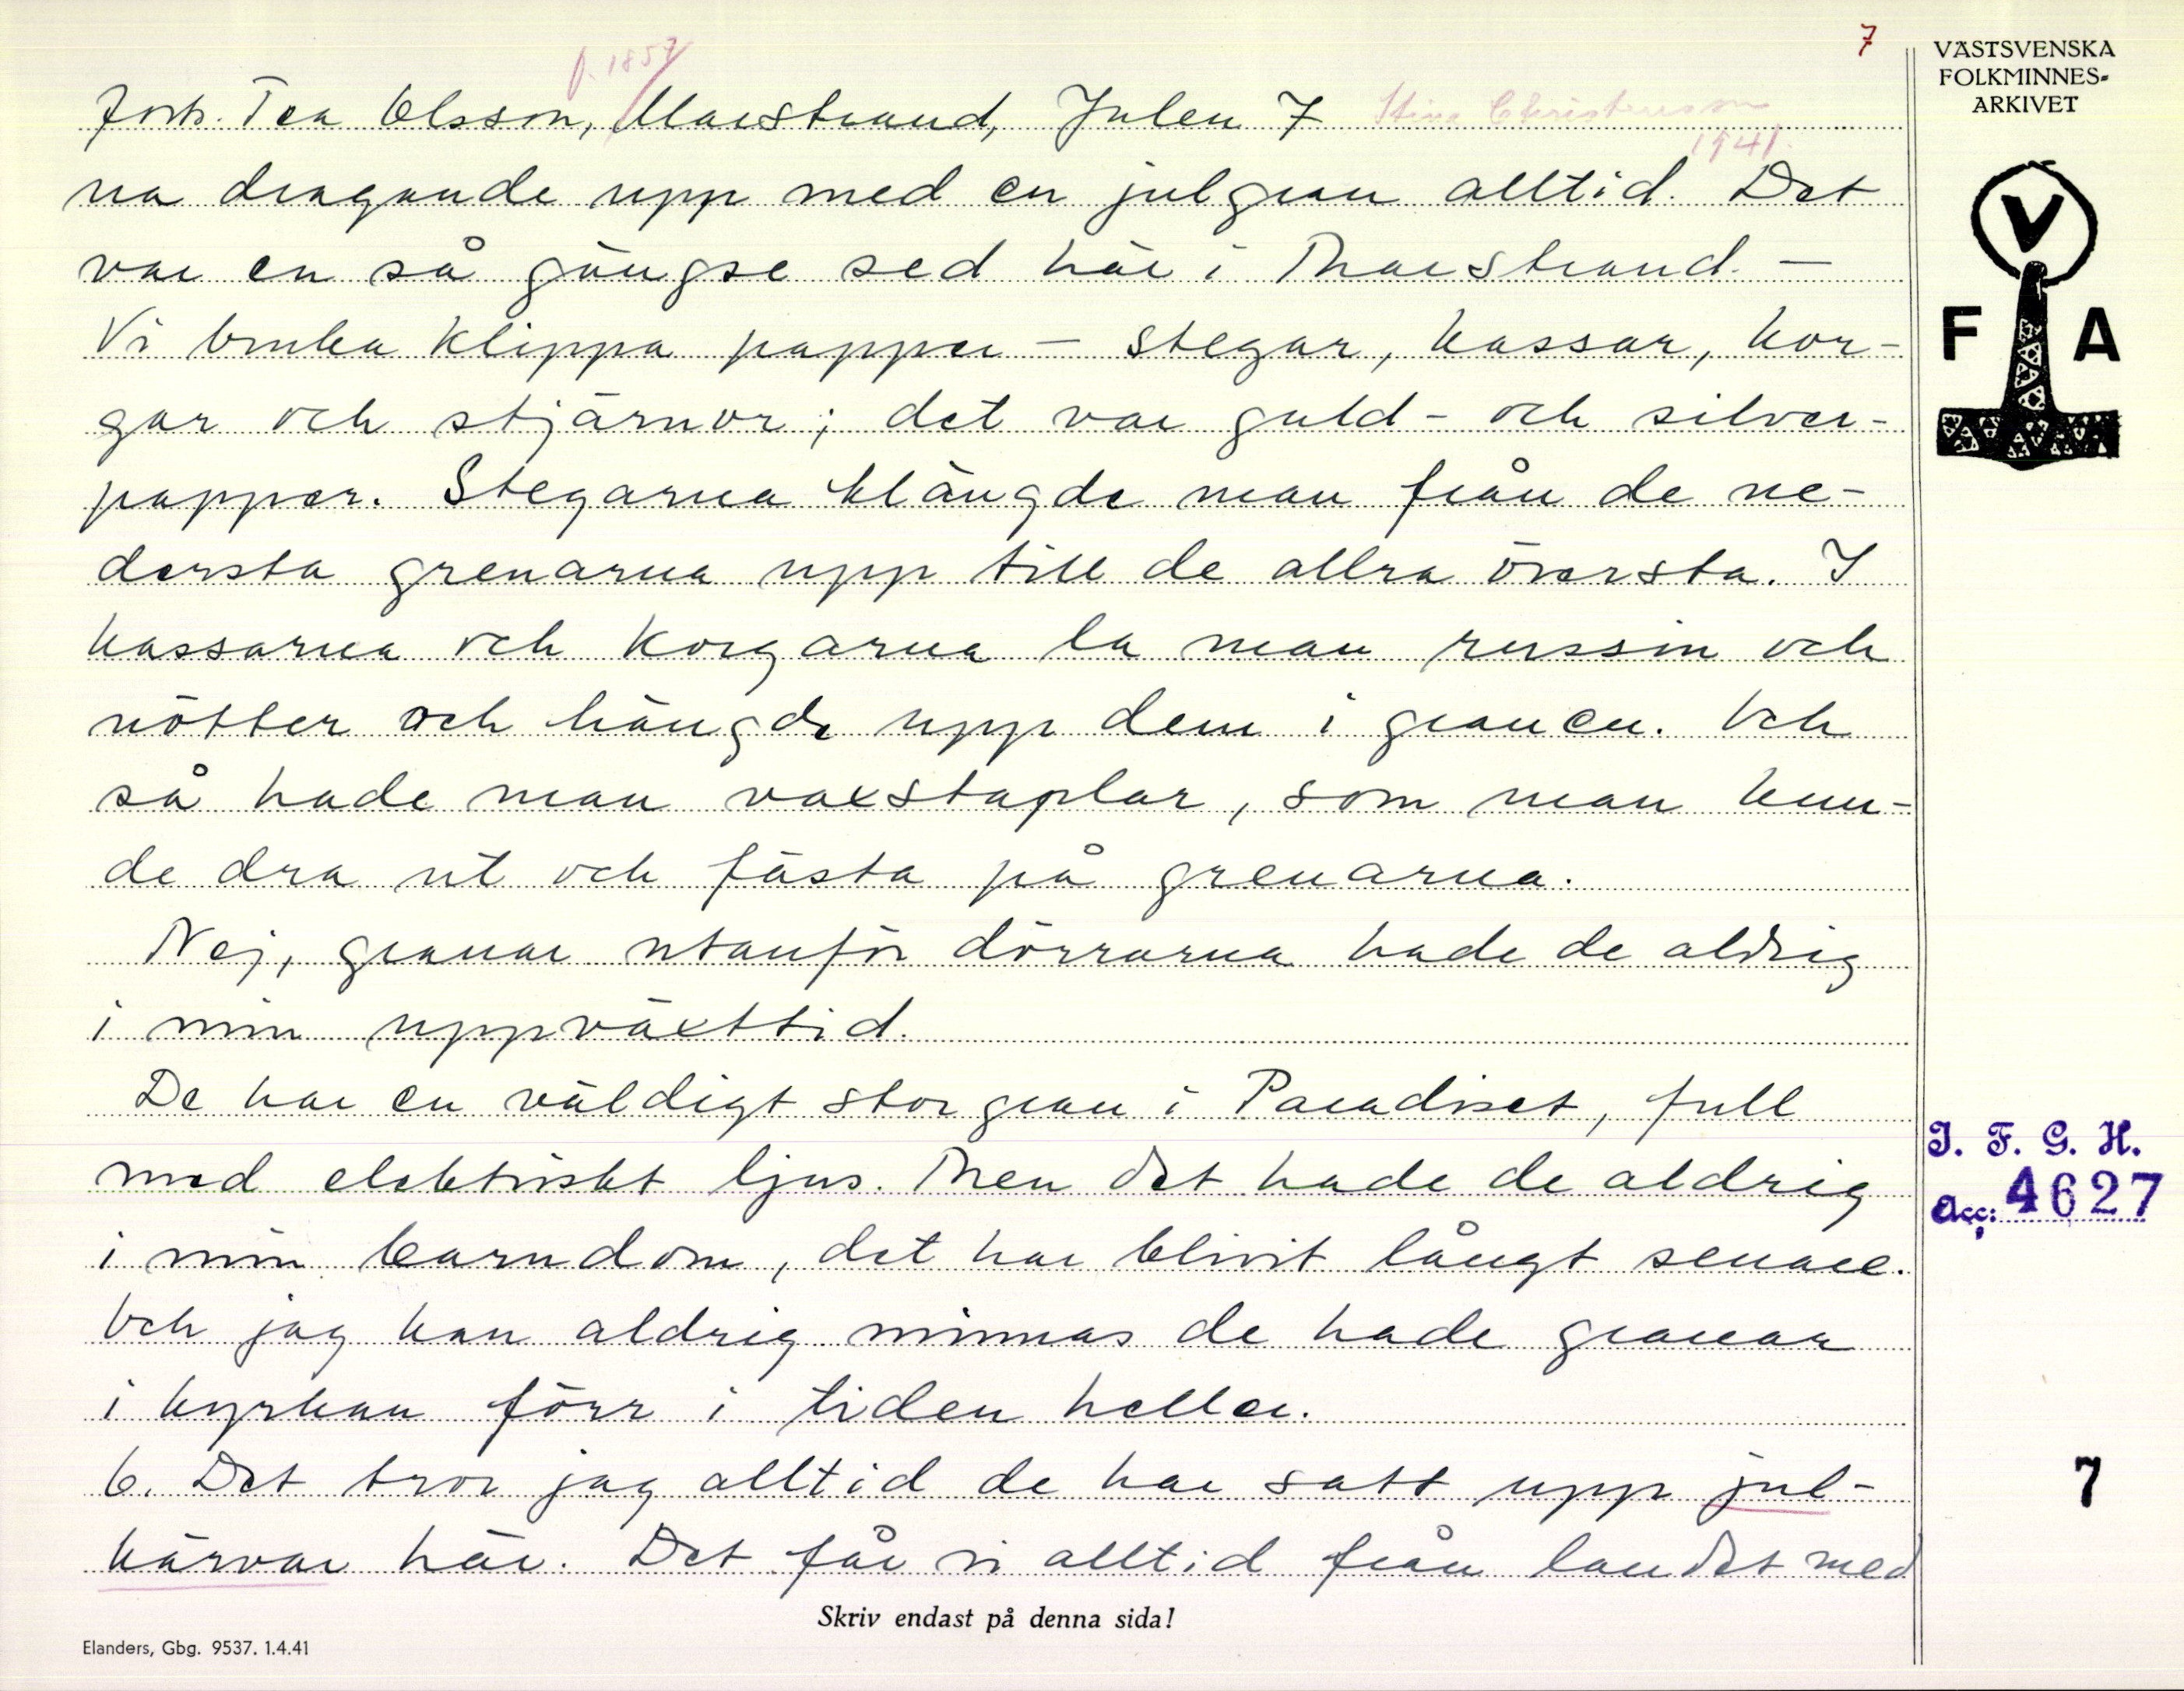 7
VÄSTSVENSKA
FOLKMINNES-
ARKIVET
f. 1857
Forts. Tea Olsson, Marstrand, Julen 7 Stina Christensson
1941.
na dragande upp med en julgran alltid. Det
var en så gängse sed här i Marstrand. –
Vi bruka klippa papper – stegar, kassar, kor-
gar och stjärnor; det var guld- och silver-
papper. Stegarna klängde man från de ne-
dersta grenarna upp till de allra översta. I
kassarna och korgarna la man russin och
nötter och hängde upp dem i granen. Och
så hade man vaxstaplar, som man kun-
de dra ut och fästa på grenarna.
Nej, granar utanför dörrarna hade de aldrig
i min uppväxttid.
De har en väldigt stor gran i Paradiset, full
med elektriskt ljus. Men det hade de aldrig
i min barndom, det har blivit långt senare.
Och jag kan aldrig minnas de hade granar
i kyrkan förr i tiden heller.
6. Det tror jag alltid de har satt upp jul-
kärvar här. Det får vi alltid från landet med
V
F A
I. F. G. H.
Acc: 4627
7
Skriv endast på denna sida!
Elanders, Gbg. 9537. 1.4.41